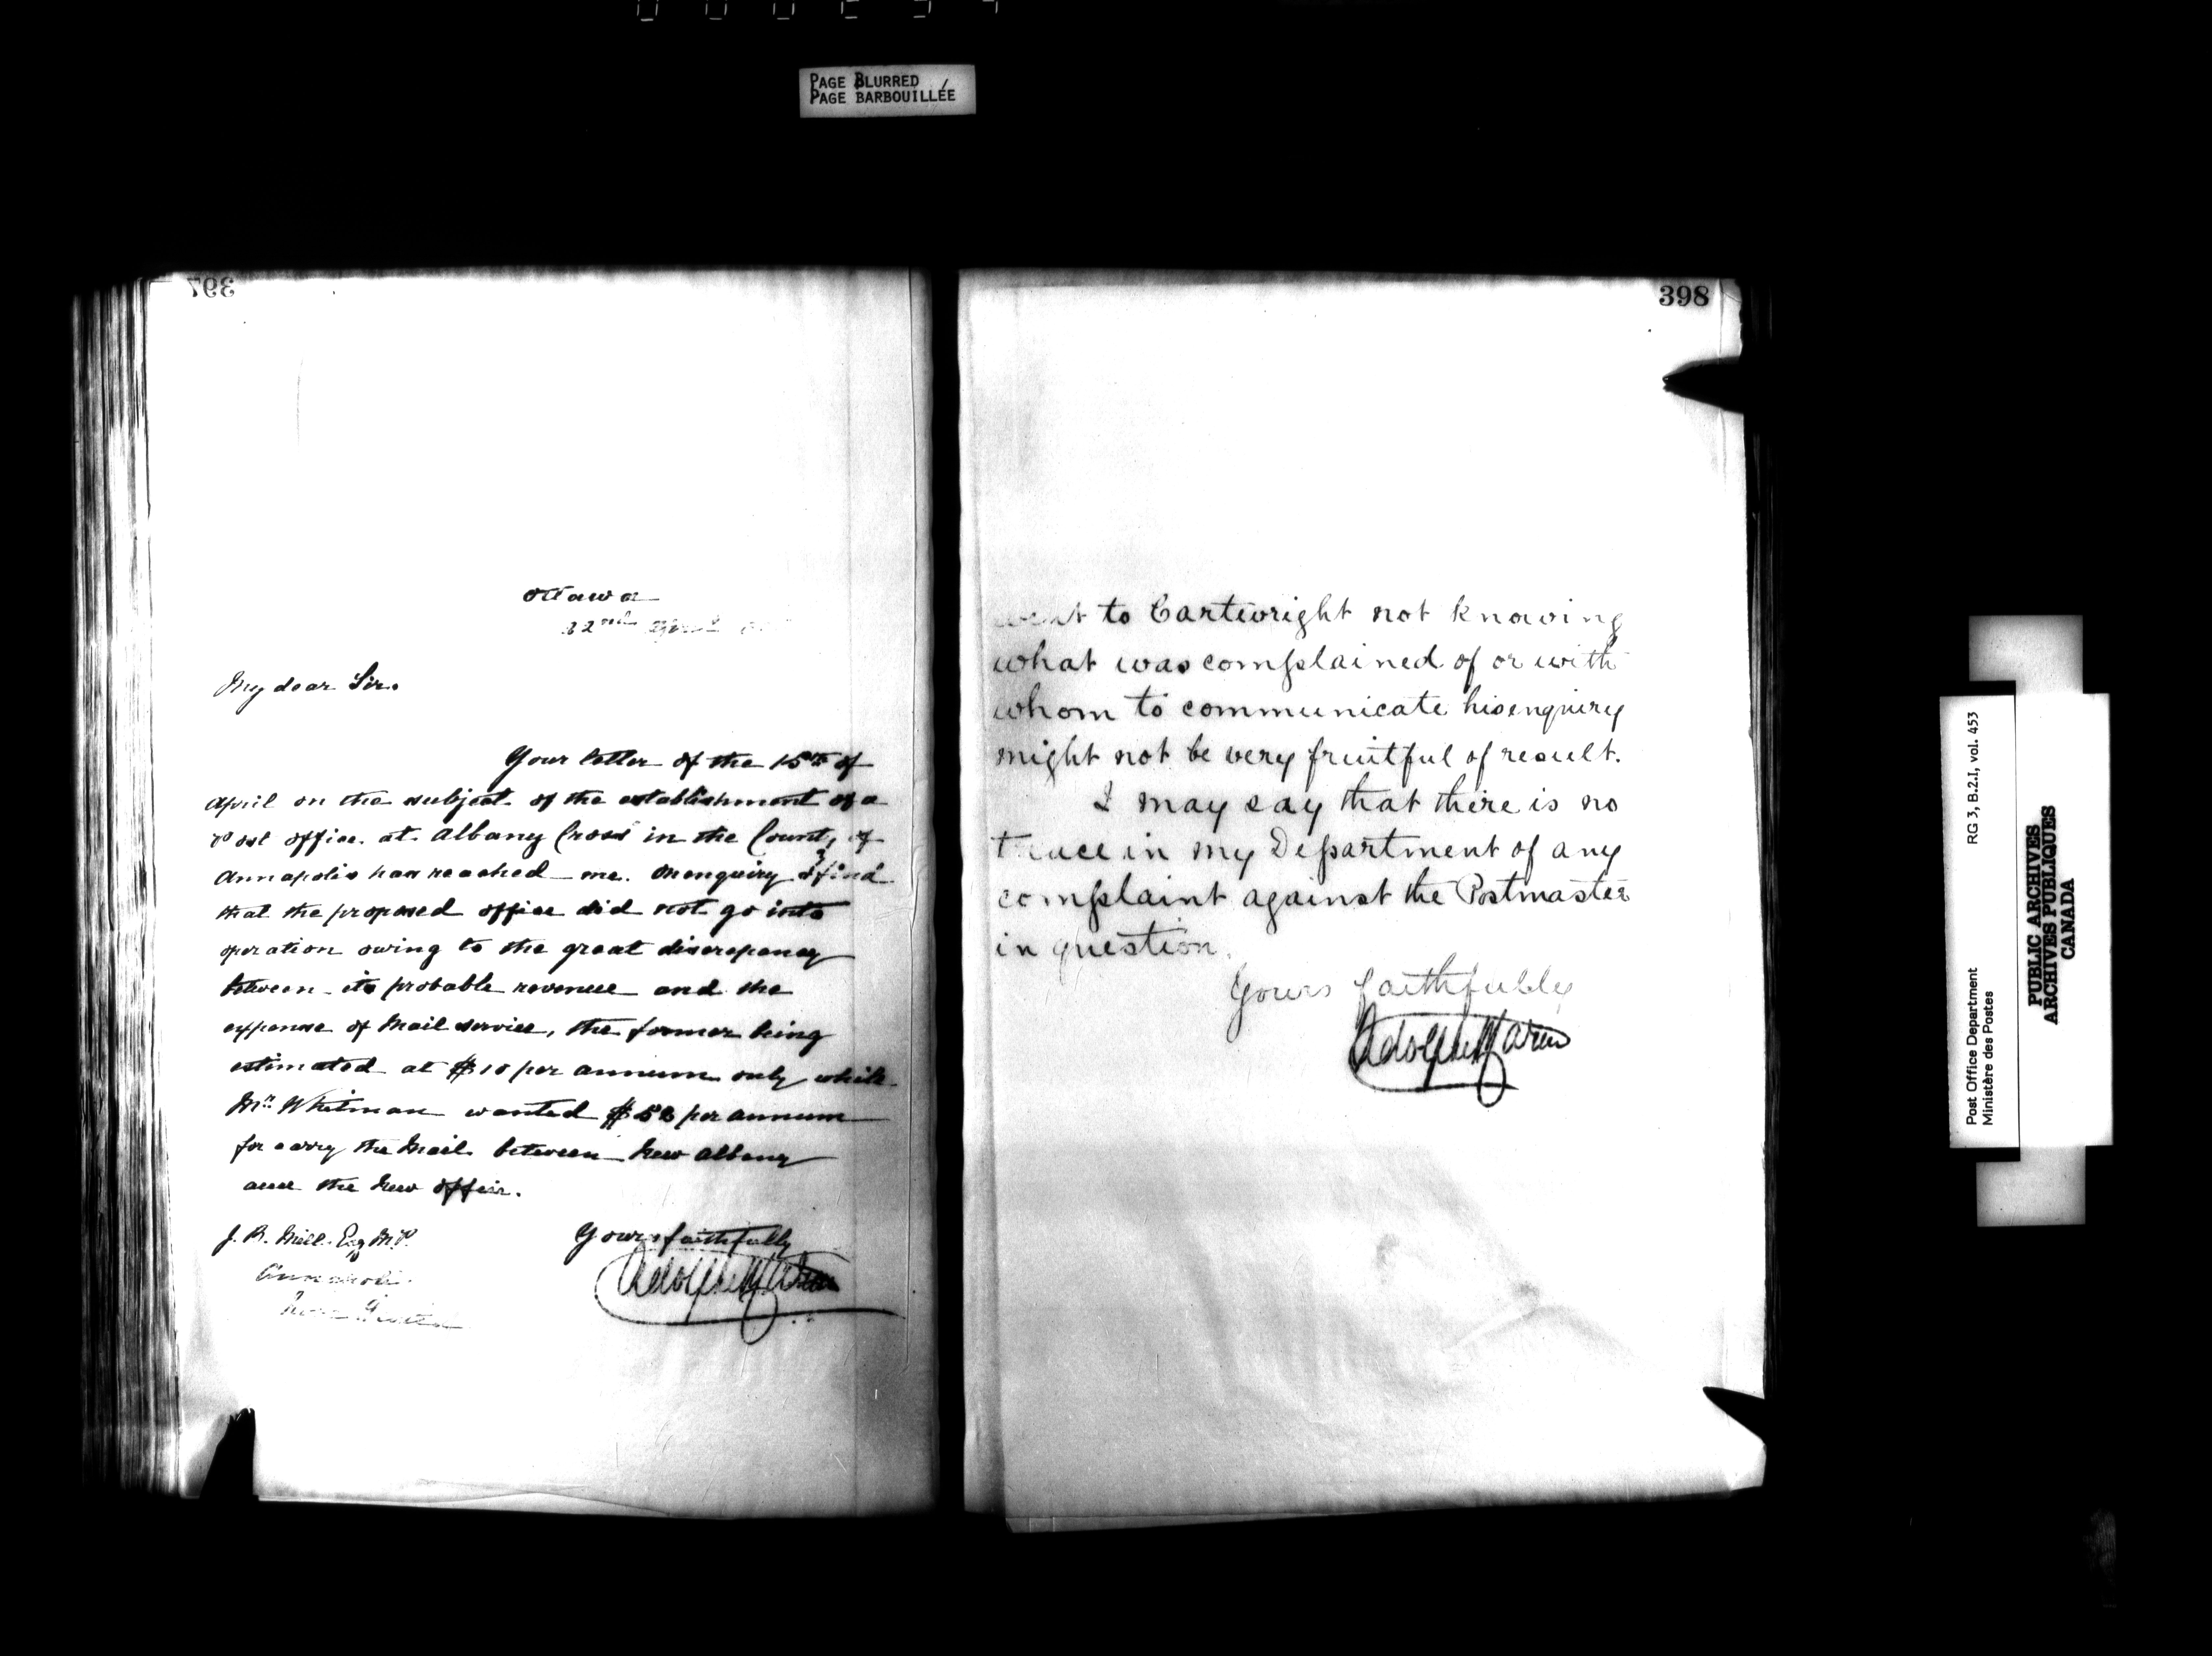 PAGE BLURRED
PAGE BARBOUILLÉE
397
Ottawa
22nd April
My dear Sir.
Your letter of the 15th of
April on the subject of the establishment of a
Post office at Albany Cross in the County of
Annapolis has reached me. On enquiry I find
that the proposed office did not go into
operation owing to the great discrepancy
between its probable revenue and the
expense of Mail service, the former being
estimated at $10 per annum only while
Mr. Whitman wanted $52 per annum
for carry the Mail between New Albany
and the New office.
J. B. Mill Esq M.P.
Annapolis
Nova Scotia
Yours faithfully
Adolphe P Caron
398
went to Cartwright not knowing
what was complained of or with
whom to communicate his enquiry
might not be very fruitful of result.
I may say that there is no
trace in my Department of any
complaint against the Postmaster
in question.
Yours faithfully
Adolphe P Caron
Post Office Department
Ministère des Postes
RG 3, B.2.I, vol. 453
PUBLIC ARCHIVES
ARCHIVES PUBLIQUES
CANADA